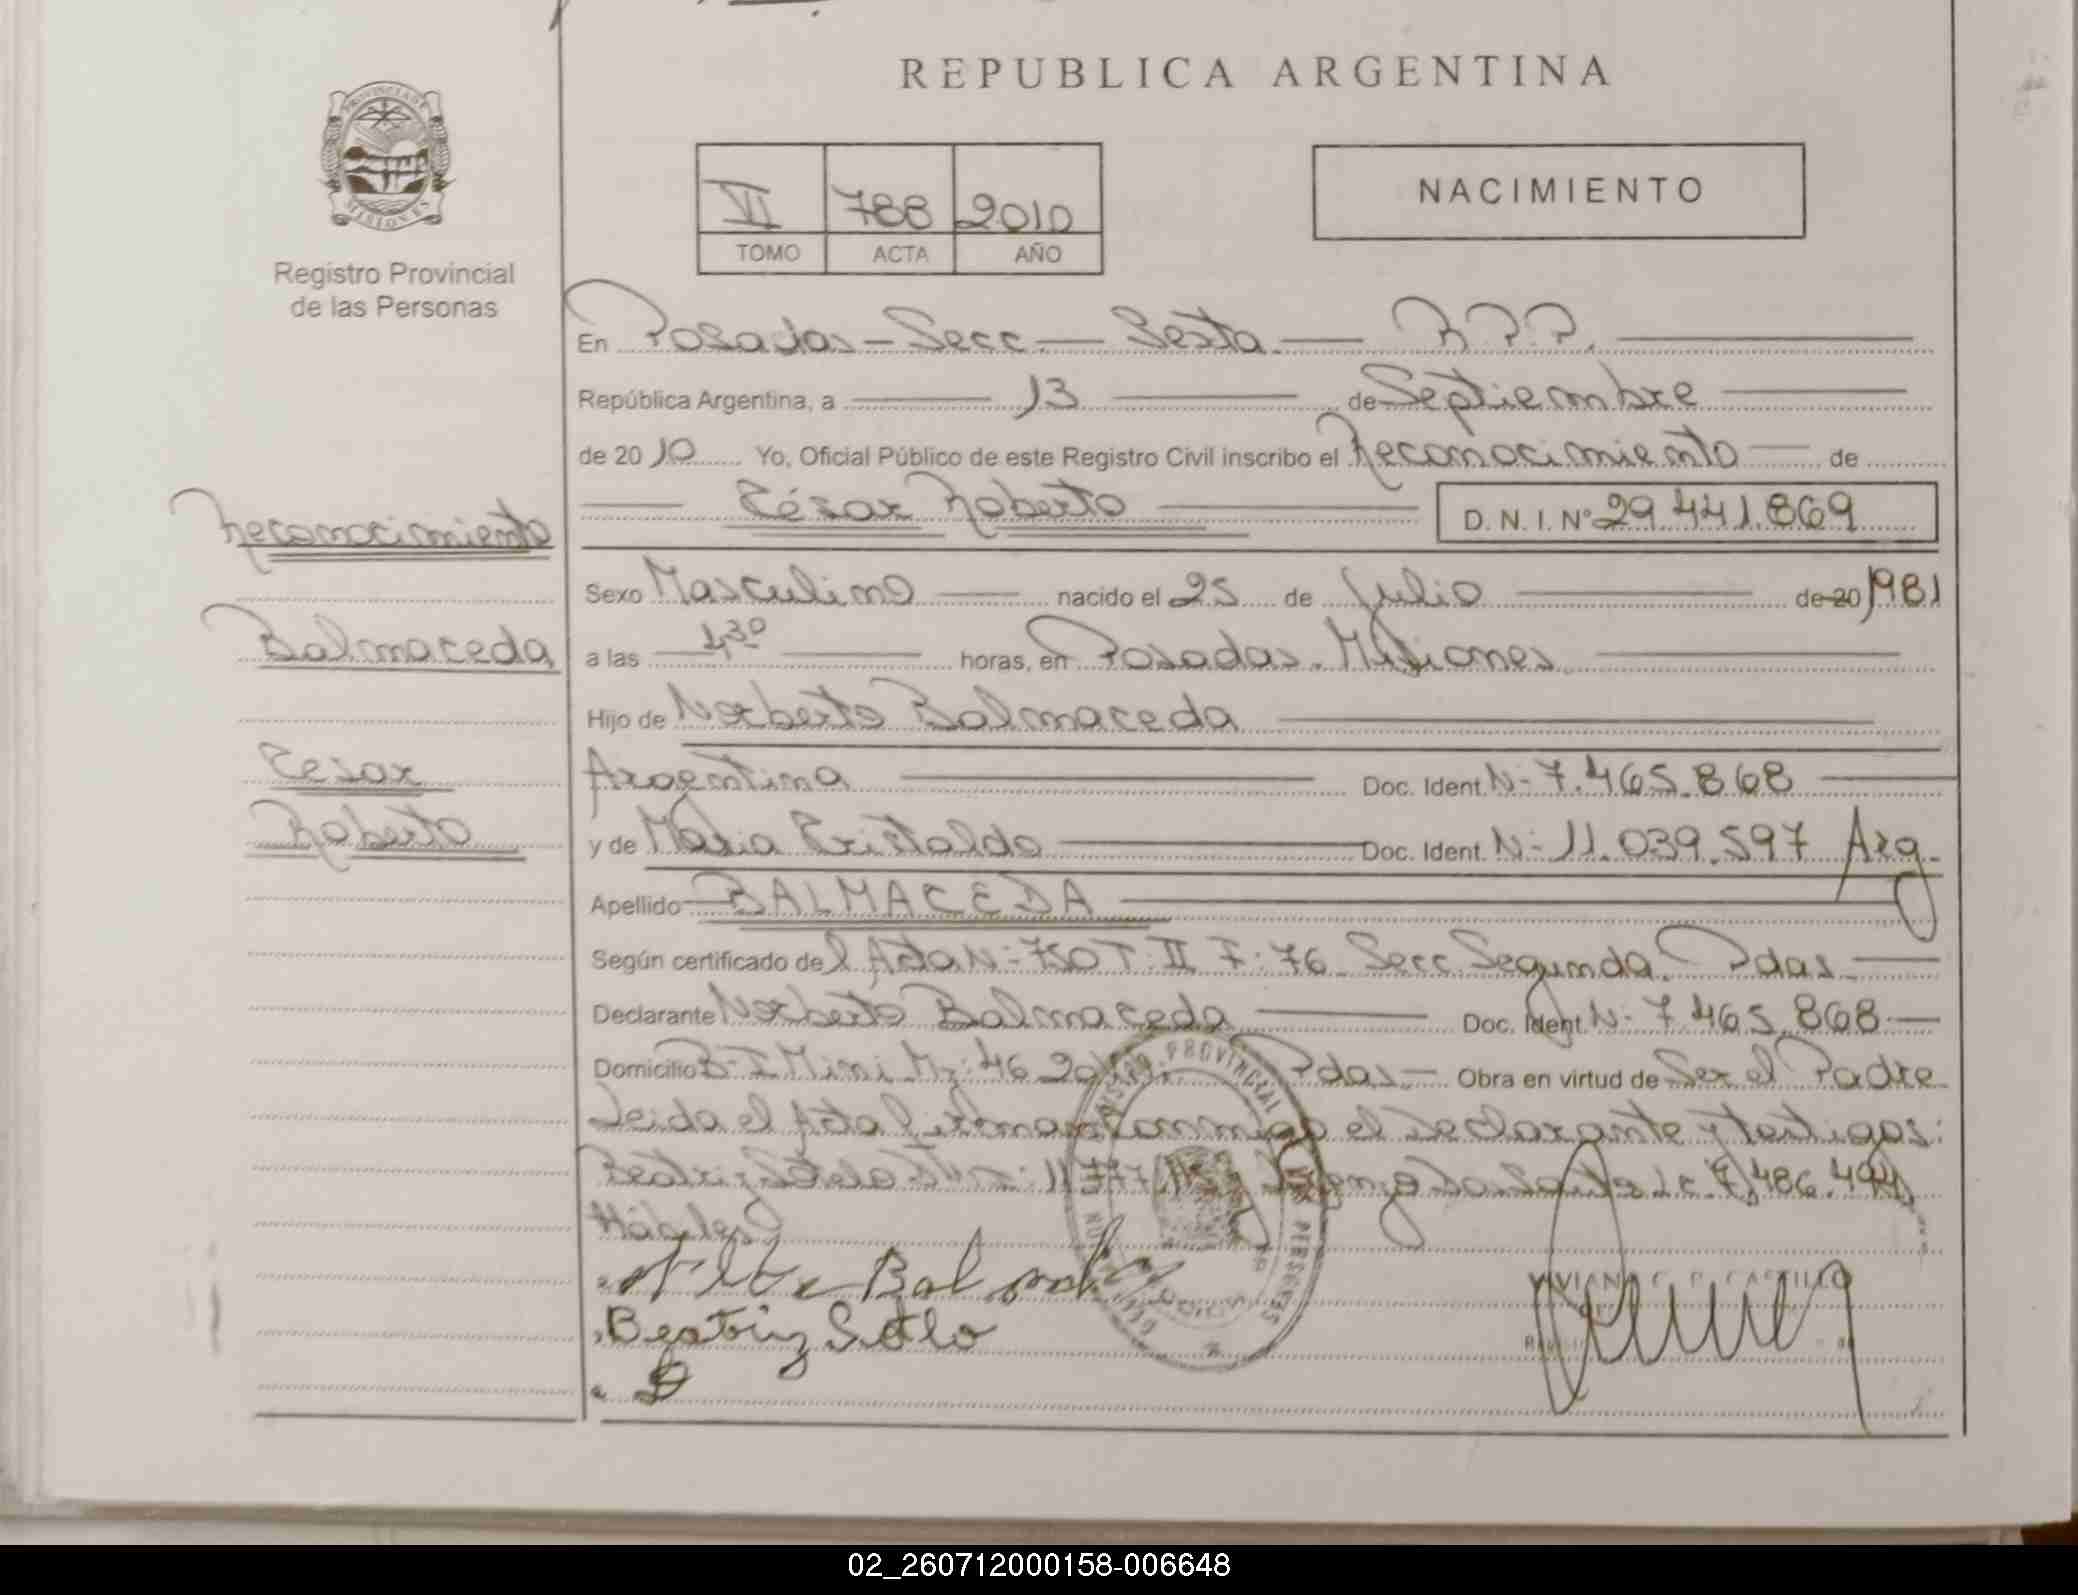 REPUBLICA ARGENTINA
PROVINCIA DE
MISIONES
Registro Provincial
de las Personas
VI 788 2010
TOMO ACTA AÑO
NACIMIENTO
En Posadas - Secc - Sexta - R.P.P.
República Argentina, a 13 de Septiembre
de 2010 Yo, Oficial Público de este Registro Civil inscribo el Reconocimiento de
César Roberto D.N.I. Nº 29.441.869
Reconocimiento
Sexo Masculino nacido el 25 de Julio de 20 1981
Balmaceda
a las 4³⁰ horas, en Posadas. Misiones
Hijo de Norberto Balmaceda
Cesar
Roberto
Argentina Doc. Ident. N- 7.465.868
y de Maria Cristaldo Doc. Ident. N- 11.039.597 Arg.
Apellido BALMACEDA
Según certificado del Acta N- 750 T: II F: 76 Secc Segunda. Pdas
Declarante Norberto Balmaceda Doc. Ident. N- 7.465.868
Domicilio B- I Mini Mz: 46 Pdas. Obra en virtud de Ser el Padre
Leida el Acta firman conmigo el Declarante y testigos:
7.486.494
Hábiles
Beatriz Sotelo
VIVIANA C. CASTILLO
02_260712000158-006648